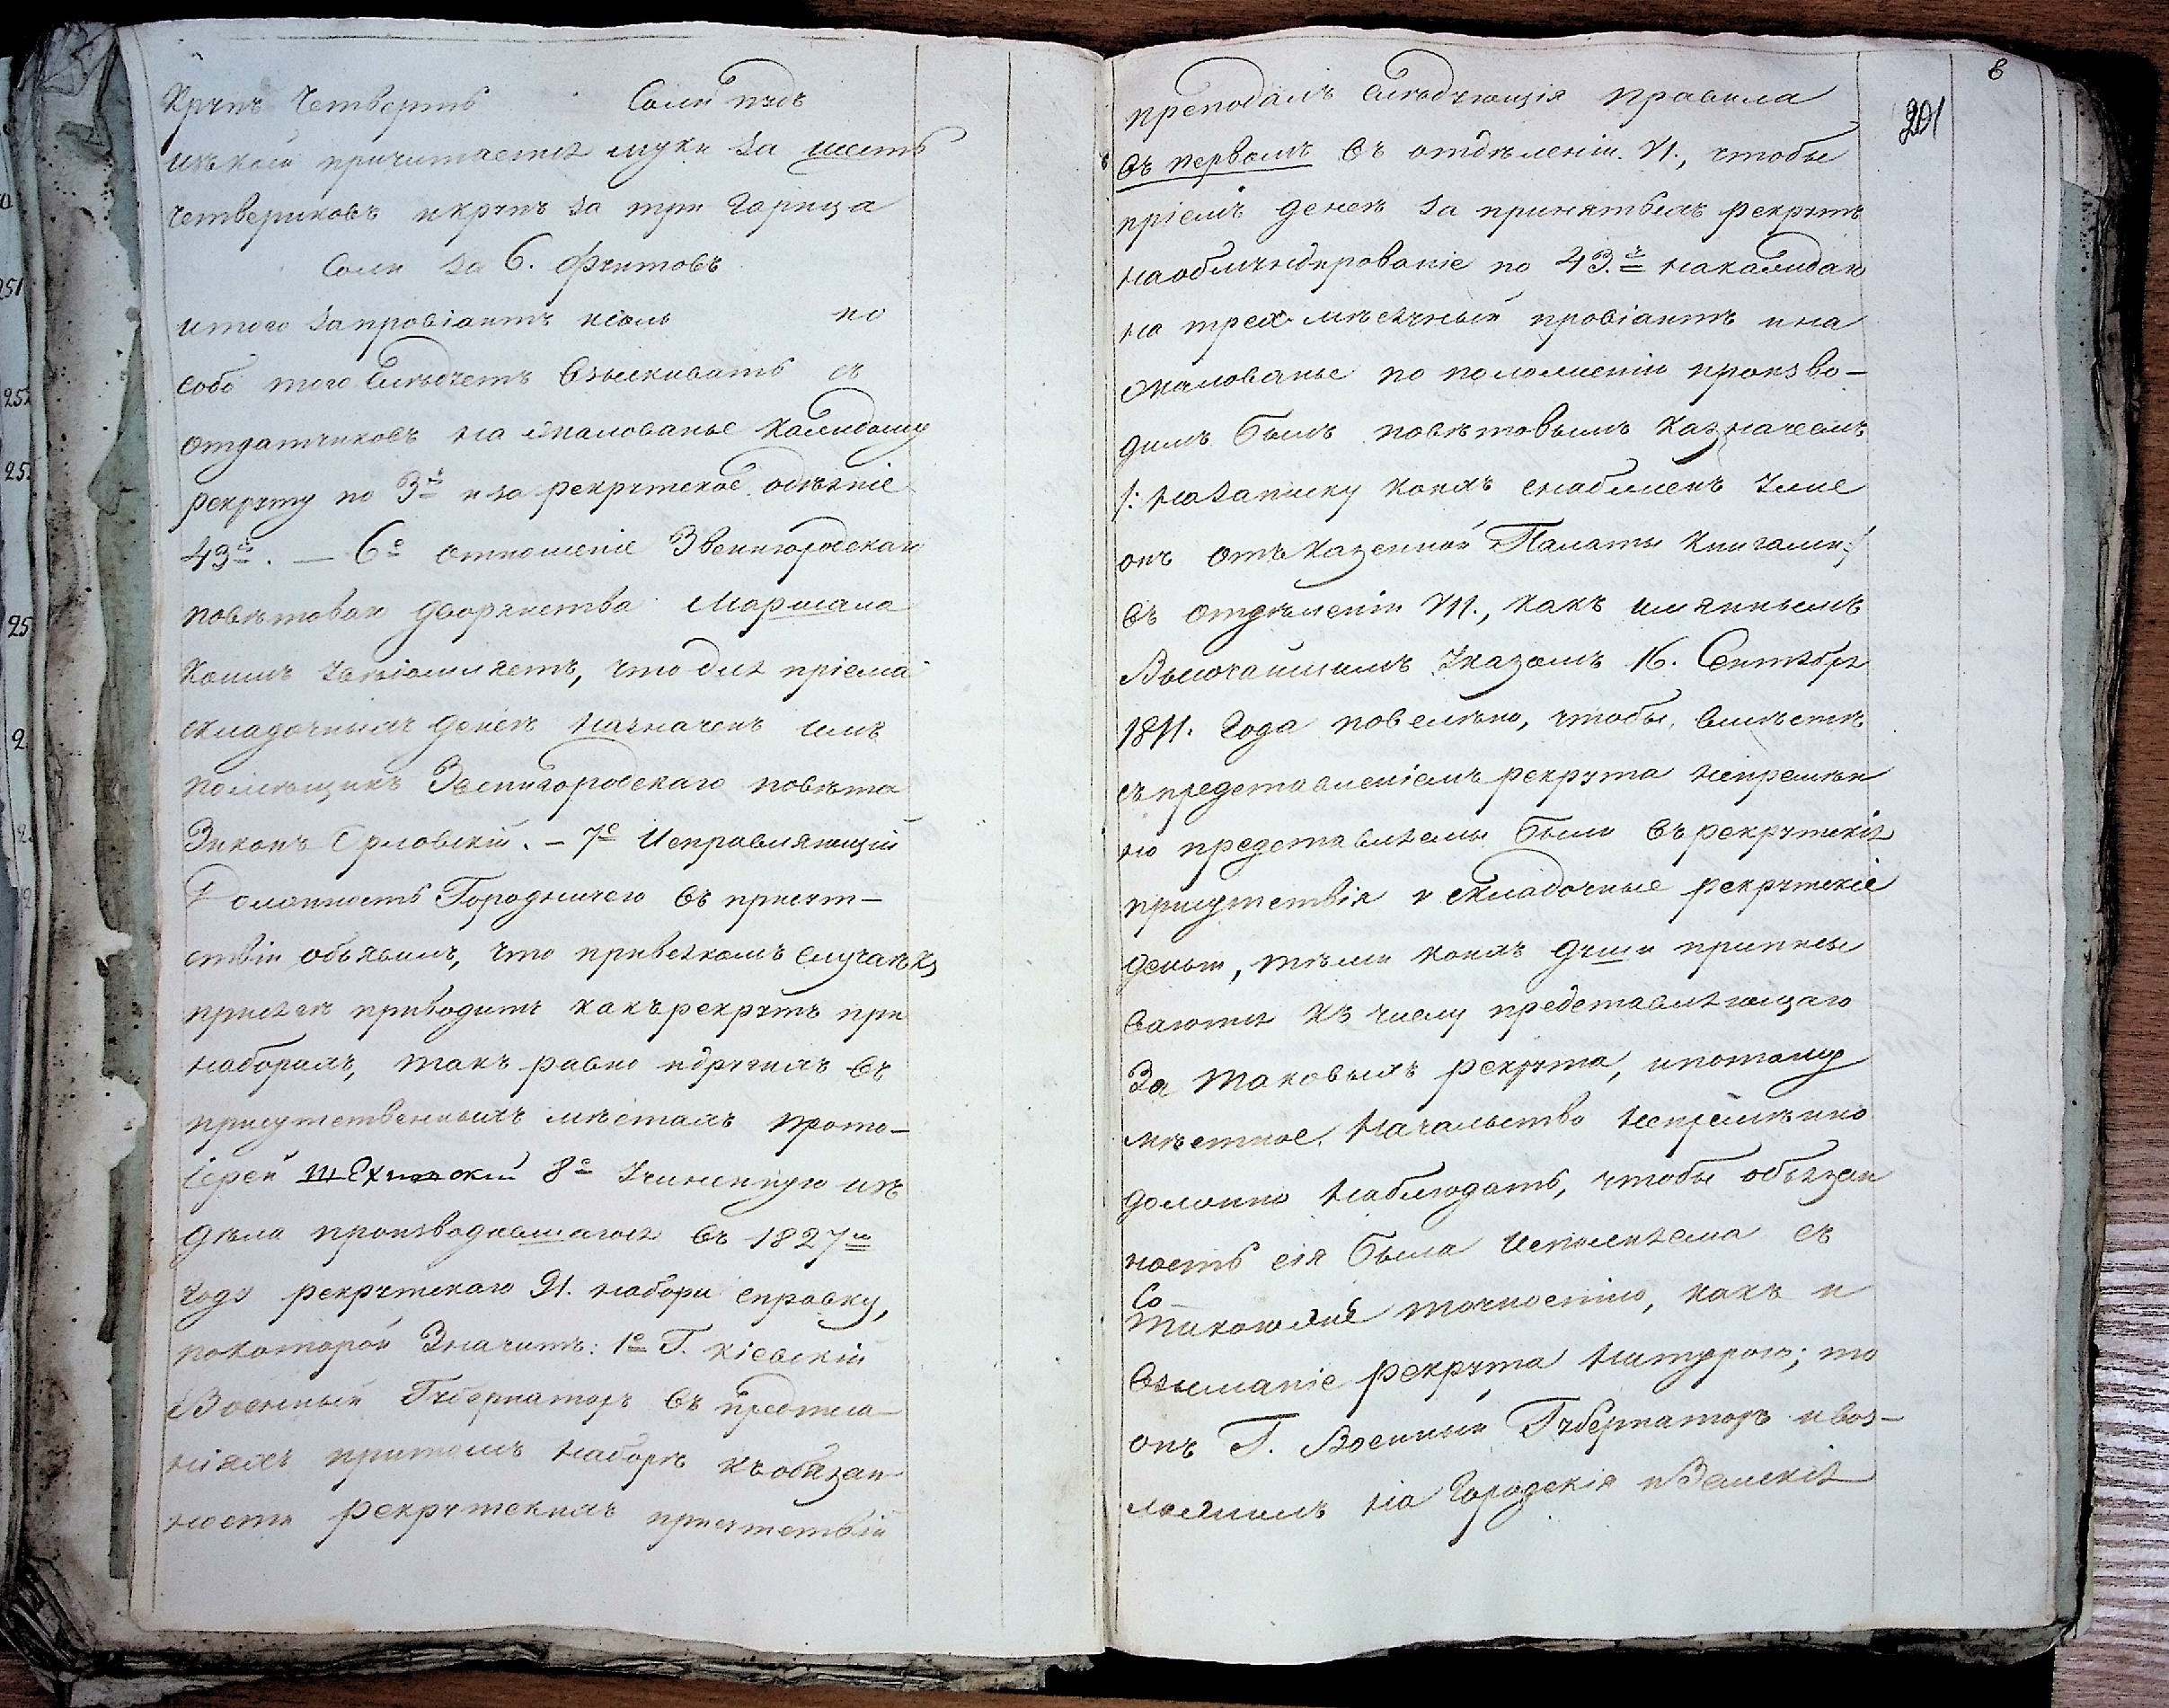 Крупъ Четверть Соли пудъ
изъ коей причитается муки за шесть
четвериковъ и крупъ за три Гарнца
Соли за 6. Фунтовъ
итого запровіантъ и соль по
собо того Слѣдуетъ Взыскивать съ
отдатчиковъ на жалованье Каждому
рекруту по 3 р и за рекрутское одѣяніе
43 р. — 6е отношеніе Звенигородскаго
повѣтоваго дворянства Маршала
коимъ увѣдомляетъ, что для пріема
складочныхъ денегъ назначенъ имъ
помѣщикъ Звенигородскаго повѣта
Орловскій. – 7е Исправляющій
Должность Городничего въ присут–
ствіи объявилъ, что при всякомъ случаѣ къ
присягѣ приводитъ какъ рекрутъ при
наборахъ, такъ равно и другихъ въ
присутственныхъ мѣстахъ прото–
іерей 8е Учиненную изъ
дѣла производившагося въ 1827м
году рекрутскаго 91. набора справку,
по которой Значитъ: 1е Г. Кіевскій
Военный Губернаторъ въ предписа–
ніяхъ притомъ наборѣ къ обязан–
ности рекрутскихъ присутствій
6
201
преподалъ Слѣдующія правила
въ первомъ въ отдѣленіи VI., чтобы
пріемъ денегъ за принятыхъ рекрутъ
на обмундированіе по 43. р на каждаго
на трехъ мѣсячный провіантъ и на
жалованье по положенію произво–
димъ былъ повѣтовымъ Казначеемъ
/: на записку коихъ снабженъ уже
онъ отъ Казенной Палаты Книгами :/
въ отдѣленіи VII., какъ имяннымъ
Высочайшимъ Указомъ 16. Сентября
1811. Года повелѣно, чтобы, вмѣстѣ
съ представленіемъ рекрута непремѣн
но представляемы были въ рекрутскія
присутствія и складочные рекрутскіе
деньги, тѣми коихъ души приписы
ваются къ числу представляющаго
За таковыхъ рекрута, и потому
мѣстное Начальство непремѣнно
должно наблюдать, чтобы обязан
ность сія была исполняема съ
Со
такою же точностію, какъ и
взыманіе рекрута натурою; то
онъ Г. Военный Губернаторъ и воз–
ложилъ на Городскія и Земскія